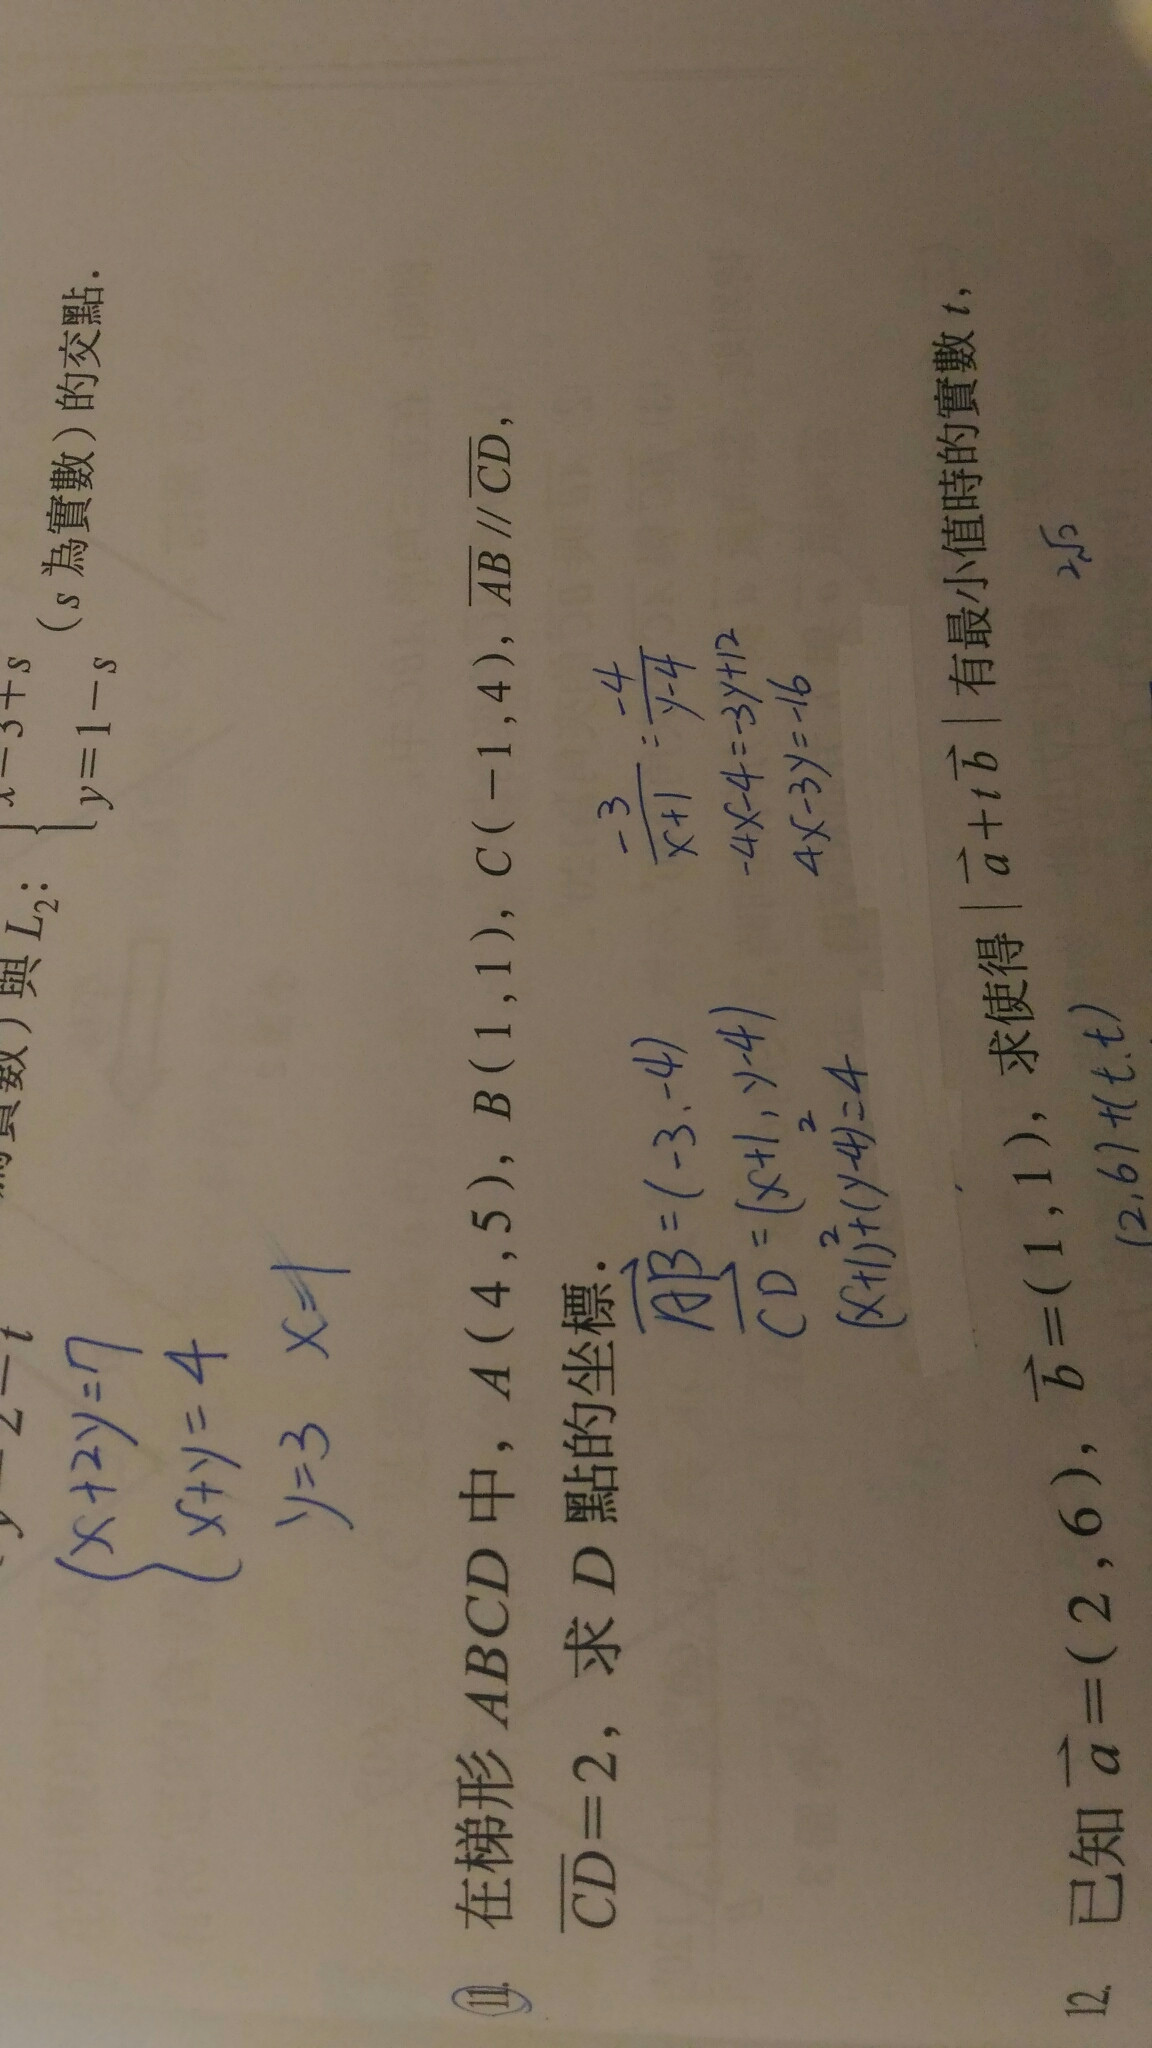 y=2-t 為實數）與 L₂: { x=3+s
y=1-s （s 為實數）的交點.
{ x+2y=7
x+y=4
y=3 x=1
11. 在梯形 ABCD 中, A(4,5), B(1,1), C(-1,4), AB // CD,
CD=2, 求 D 點的坐標.
AB=(-3,-4)
CD=(x+1, y-4)
(x+1)²+(y-4)²=4
-3/x+1=-4/y-4
-4x-4=-3y+12
4x-3y=-16
12. 已知 a=(2,6), b=(1,1), 求使得 | a+tb | 有最小值時的實數 t,
(2,6)+(t,t)